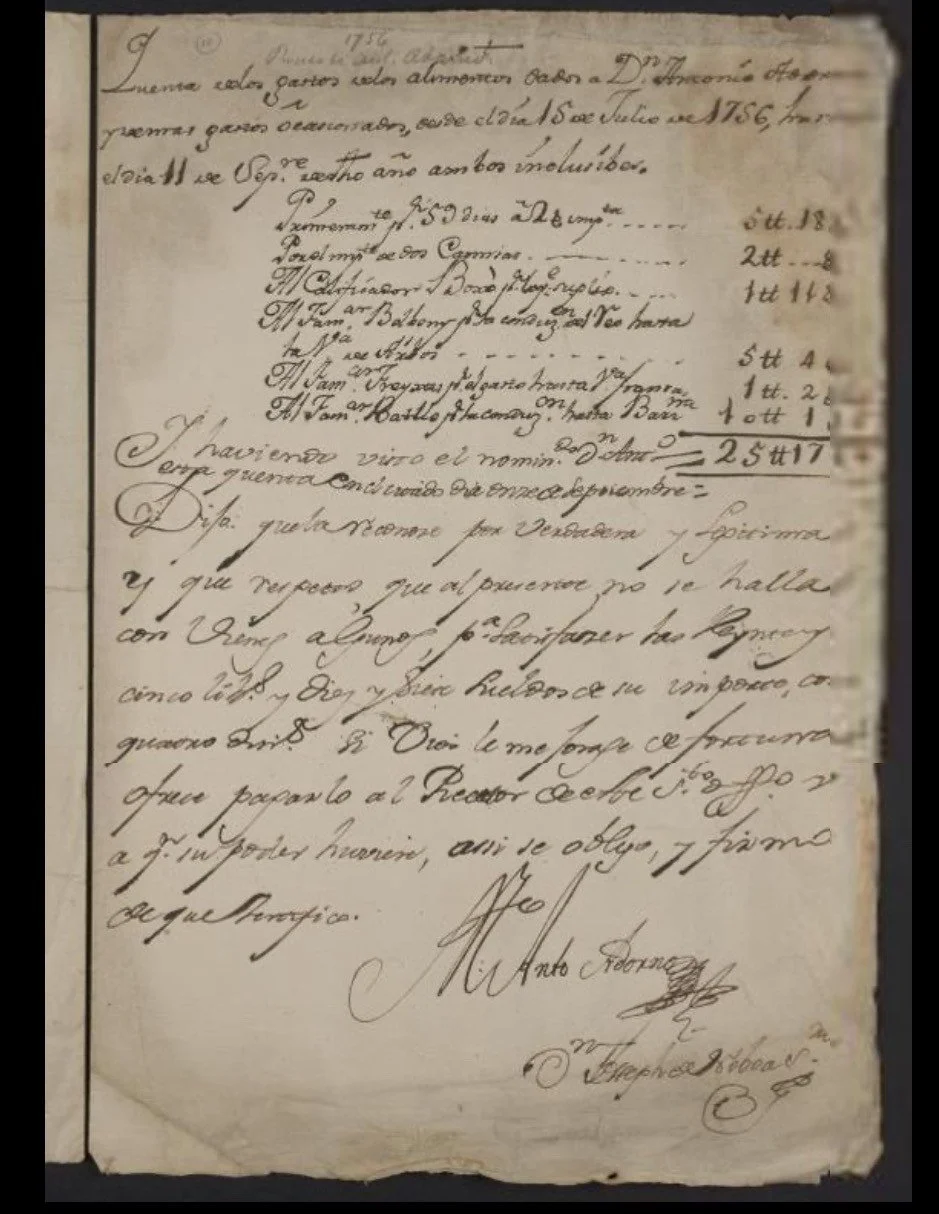 1756
Quenta de los gastos de los alimentos dados a Dn. Antonio Ador
y demas gastos ocasionados, desde el dia 15 de Julio de 1756, has
el dia 11 de Sepre. de dho año ambos inclusibes.
Primeramte. pr. 59 dias a 2 8 5 tt. 18
Por el impte. de dos Camisas 2 tt 8
Al Boxò pr. 1 tt 11 8
Al Famar. Balbeny pr. la conduzon. del Reo hasta
la Va. de Arbos 5 tt 4
Al Famar. Freyxas pr. el gasto hasta Va. franca 1 tt. 2
Al Famar. pr. la conduzon. hasta Barnña 10 tt 1
25 tt 17
Y haviendo visto el nomindo. Dn. Anto.
esta quenta concluida dia onze de Septiembre =
Dijo: que la reconose por Verdadera y Legitima
y que respeto que al presente no se halla
con Vienes algunos, pa. satisfazer las Veynte y
cinco libs. y Diez y siete sueldos de su importe, co
quatro dins. Si Dios le mejorase de fortuna
ofrece pagarlo al Receptor de este Sto. Offo. o
a qn. su poder huviere, assi se obligo, y firmò
de que Zertifico.
Anto Adorno
Dn Joseph de